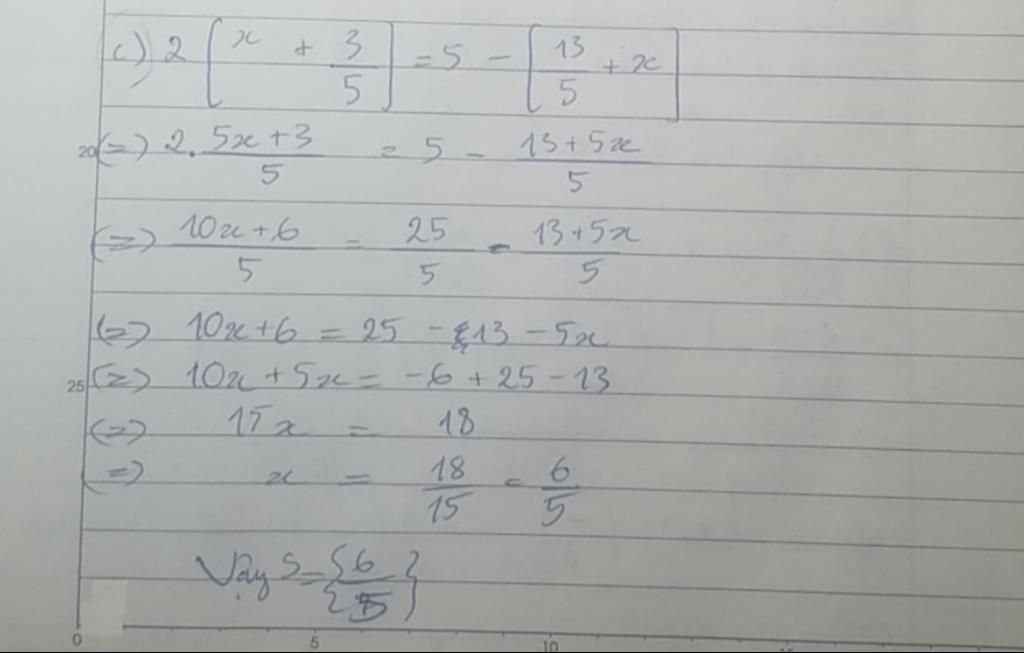 c) 2 [x + 3/5] = 5 - [13/5 + x]
20 (=) 2. (5x+3)/5 = 5 - (13+5x)/5
(=) (10x+6)/5 = 25/5 - (13+5x)/5
(=) 10x+6 = 25 - 13 - 5x
25 (=) 10x + 5x = -6 + 25 - 13
(=) 15x = 18
(=) x = 18/15 = 6/5
Vậy S = {6/5}
0 5 10